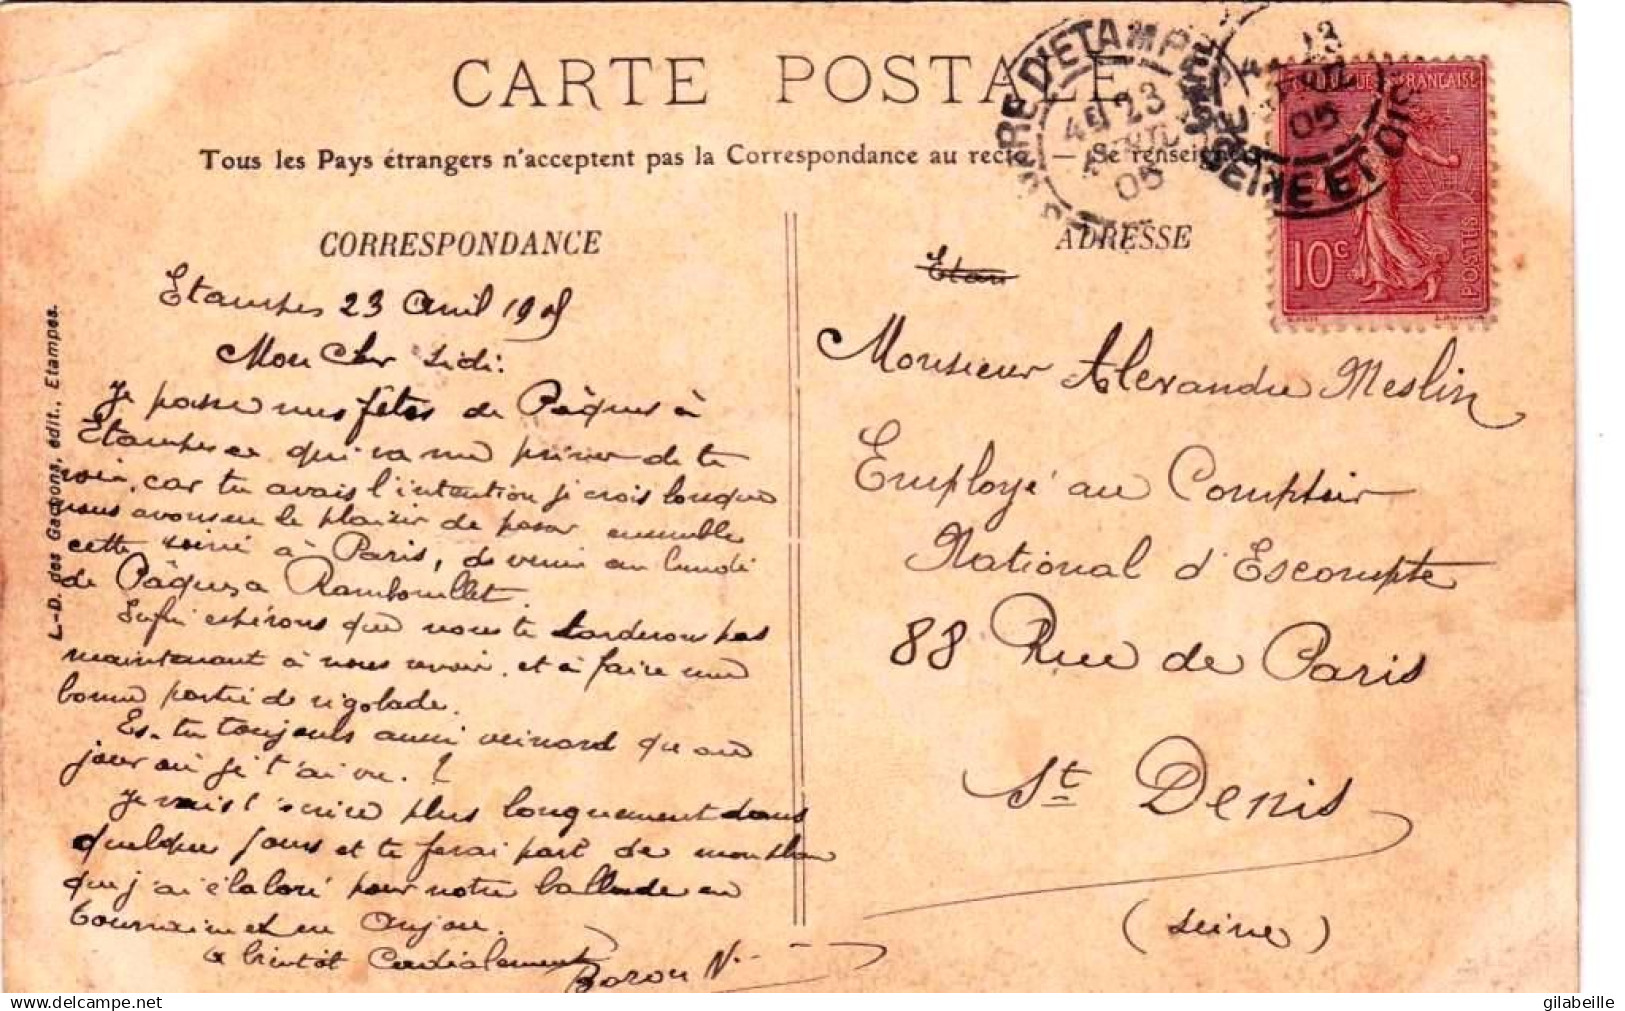 CARTE POSTALE
Tous les Pays étrangers n'acceptent pas la Correspondance au recto. — Se renseigner
CORRESPONDANCE
Etampes 23 Avril 1905
Mon Cher Didi:
Je passe mes fêtes de Pâques à
Etampes ce qui va me priver de te
voir, car tu avais l'intention je crois lorsque
nous avons eu le plaisir de passer ensemble
cette soirée à Paris, de venir au lundi
de Pâques à Rambouillet.
Enfin espérons que nous ne tarderons pas
maintenant à nous revoir, et à faire une
bonne partie de rigolade.
Es-tu toujours aussi veinard qu'au
jour où je t'ai vu. ?
Je vais t'écrire plus longuement dans
quelques jours et te ferai part de mon plan
que j'ai élaboré pour notre ballade en
Tourraine et en Anjou.
à bientôt Cordialement
Baron N.
L.-D. des Gachons, édit., Etampes.
ADRESSE
Etam
Monsieur Alexandre Meslin
Employé au Comptoir
National d'Escompte
88 Rue de Paris
St Denis
(Seine)
GARE D'ETAMPES
23
AVRIL
05
SEINE ET OISE
05
FRANÇAISE
10c
POSTES
www.delcampe.net
gilabeille